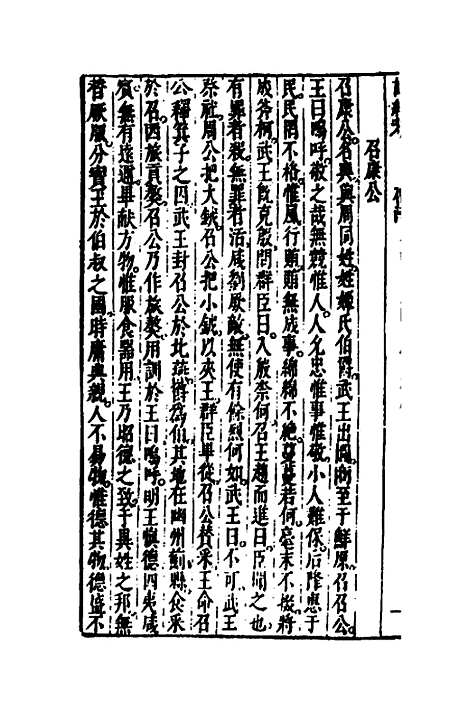 召康公
召康公名奭與周同姓姓姬氏伯爵武王出圖商至于鮮原召召公
王曰嗚呼敬之哉無競惟人人允忠惟事惟敬小人難保后降惠于
民民罔不格惟風行賄賄無成事綿綿不絶蔓蔓若何毫末不掇將
成斧柯武王旣克殷問群臣曰入殷奈何召王趨而進曰臣聞之也
有罪者殺無罪者活咸劉厥敵無使有餘烈何如武王曰不可武王
祭社周公把大鉞召公把小鉞以夾王群臣畢從召公賛采王命召
公釋箕子之囚武王封召公於北燕爲伯其地在幽州薊縣食采
於召西旅貢獒召公乃作旅獒用訓於王曰嗚呼明王愼德四夷咸
賓無有遠邇畢献方物惟服食器用王乃昭德之致于異姓之邦無
替厥服分寳玉於伯叔之國時庸典親人不易物惟德其物德盛不